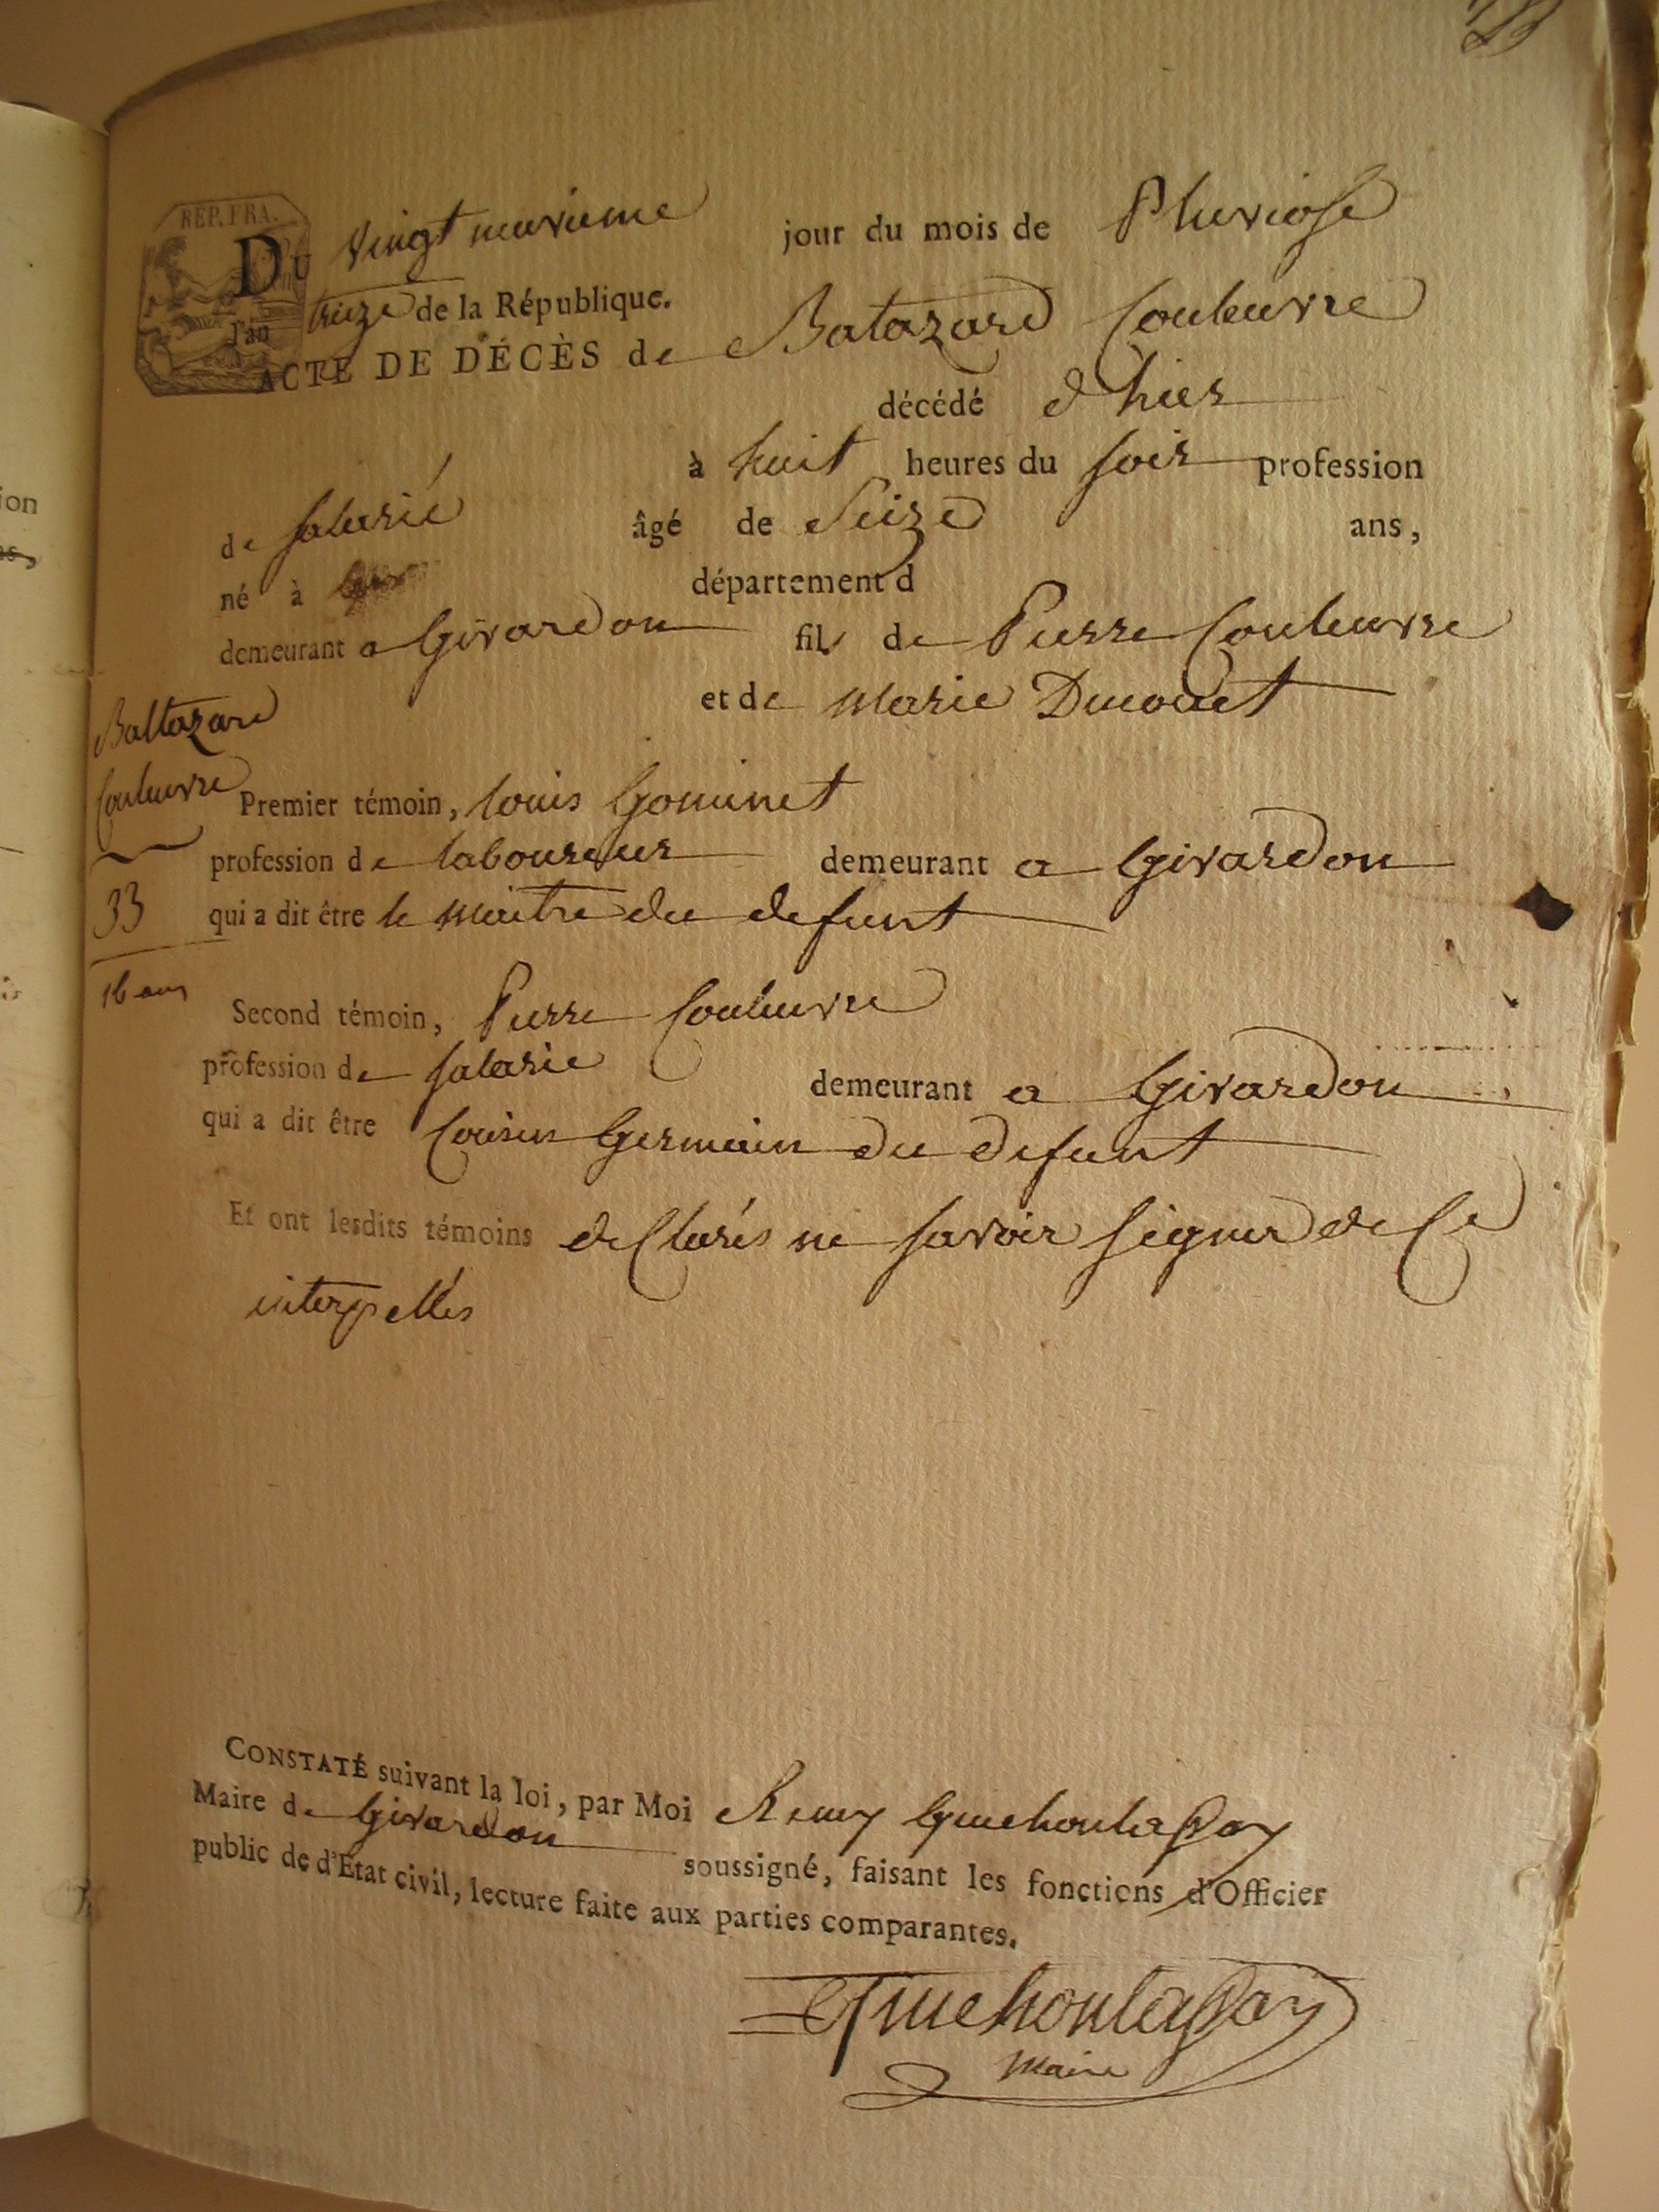 REP. FRA.
DU vingt neuvieme jour du mois de Pluviose
l'an treize de la République.
ACTE DE DÉCÈS de Batazard Couleuvre
décédé d'hier
à huit heures du soir profession
de salarié âgé de Seize ans,
né à département d
demeurant a Girardon fils de Pierre Couleuvre
et de Marie Ducouet
Baltazard
Couleuvre
33
16 ans
Premier témoin, Louis Gominet
profession de laboureur demeurant a Girardon
qui a dit être le maitre du defunt
Second témoin, Pierre Couleuvre
profession de salarie demeurant a Girardon
qui a dit être Cousin Germain du defunt
Et ont lesdits témoins declarés ne savoir signer de ce
interpellés
CONSTATÉ suivant la loi, par Moi Remy
Maire de Girardon soussigné, faisant les fonctions d'Officier
public de d'Etat civil, lecture faite aux parties comparantes.
Maire
ion